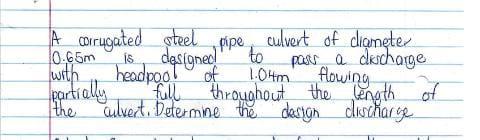 A corrugated steel pipe culvert of diameter
0.65m is designed to pass a discharge
with headpool of 1.04m flowing
partially full throughout the length of
the culvert. Determine the design discharge